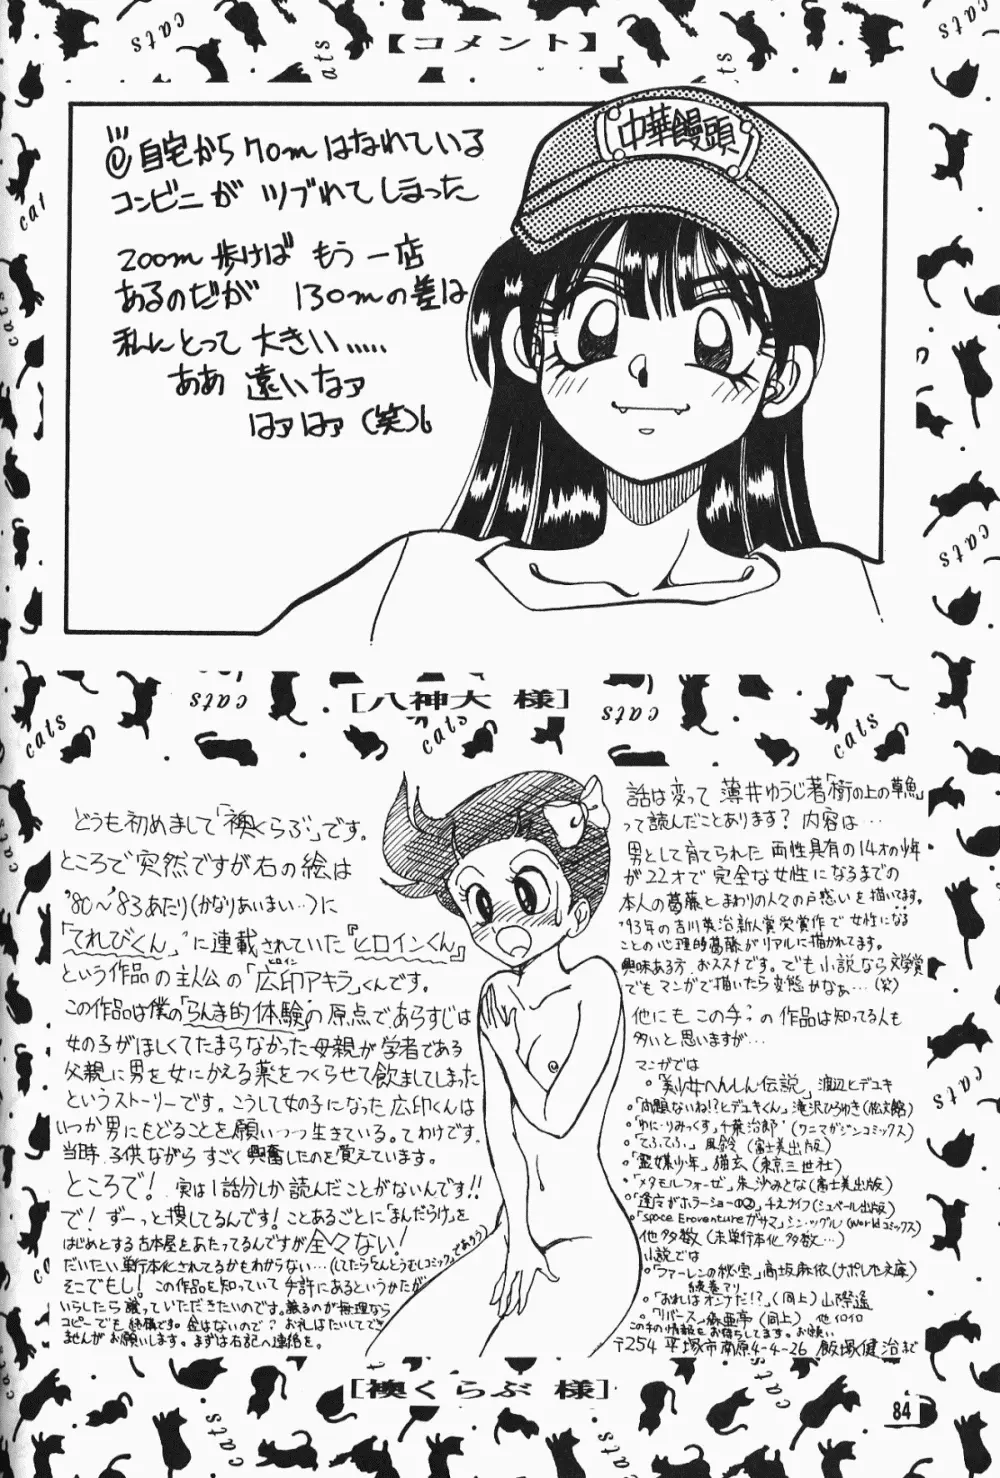 【コメント】
中華饅頭
自宅から70mはなれている
コンビニが ツブれてしまった
200m歩けば もう一店
あるのだが 130mの差は
私にとって 大きい.....
ああ 遠いなァ
はァはァ(笑)
[八神大 様]
どうも初めまして「襖くらぶ」です。
ところで突然ですが右の絵は
'80〜'83あたり(かなりあいまい…)に
「てれびくん」に連載されていた『ヒロインくん』
という作品の主人公の「広印アキラ」くんです。
ヒロイン
この作品は僕の「らんま的体験」の原点で、あらすじは
女の子がほしくてたまらなかった母親が学者である
父親に男を女にかえる薬をつくらせて飲ましてしまった
というストーリーです。こうして女の子になった広印くんは
いつか男にもどることを願いつつ生きている。てわけです。
当時、子供ながらすごく興奮したのを覚えています。
ところで! 実は1話分しか読んだことがないんです!!
で!ずーっと捜してるんです!ことあるごとに「まんだらけ」を
はじめとする古本屋をあたってるんですが全々ない!
だいたい単行本化されてるかもわからない…(してたらてんとうむしコミックスであろう)
そこでもし!この作品を知っていて手許にあるというかたが
いらしたら譲っていただきたいのです。譲るのが無理なら
コピーでも結構です。金はないので?お礼はたいしてでき
ませんがお願いします。まずは右記へ連絡を。
話は変って 薄井ゆうじ著「樹の上の草魚」
って読んだことあります?内容は…
男として育てられた両性具有の14才の少年
が22才で完全な女性になるまでの
本人の葛藤とまわりの人々の戸惑いを描いてます。
'93年の吉川英治新人賞受賞作で女性になる
ことの心理的葛藤がリアルに描かれてます。
興味ある方、おススメです。でも小説なら文学賞
でもマンガで描いたら変態かなぁ…(笑)
他にもこの手の作品は知ってる人も
多いと思いますが…
マンガでは
○「美少女へんしん伝説」渡辺ヒデユキ
○「問題ないね!?ヒデユキくん」滝沢ひろゆき(松文館)
○「ゆに・りみっくす」千葉治郎(ワニマガジンコミックス)
○「てふてふ」風鈴(富士美出版)
○「霊媒少年」猫玄(東京三世社)
○「メタモルフォーゼ」朱沙みとな(富士美出版)
○「逢方がホラーショーの②」チネライフ(シュベール出版)
○「Space Eroventureガサマ」シン・ツグル(Worldコミックス)
他多数(未単行本化多数…)
小説では
○「ファーレンの秘宝」高坂麻依(ナポレオン文庫)
続巻アリ
○「おれはオンナだ!?」(同上)山際遥
○「リバース」森亜亭(同上)他イロイロ
この手の情報をお待ちしてます。お願い
〒254 平塚市南原4-4-26 飯塚健治まで
[襖くらぶ 様]
84
cats